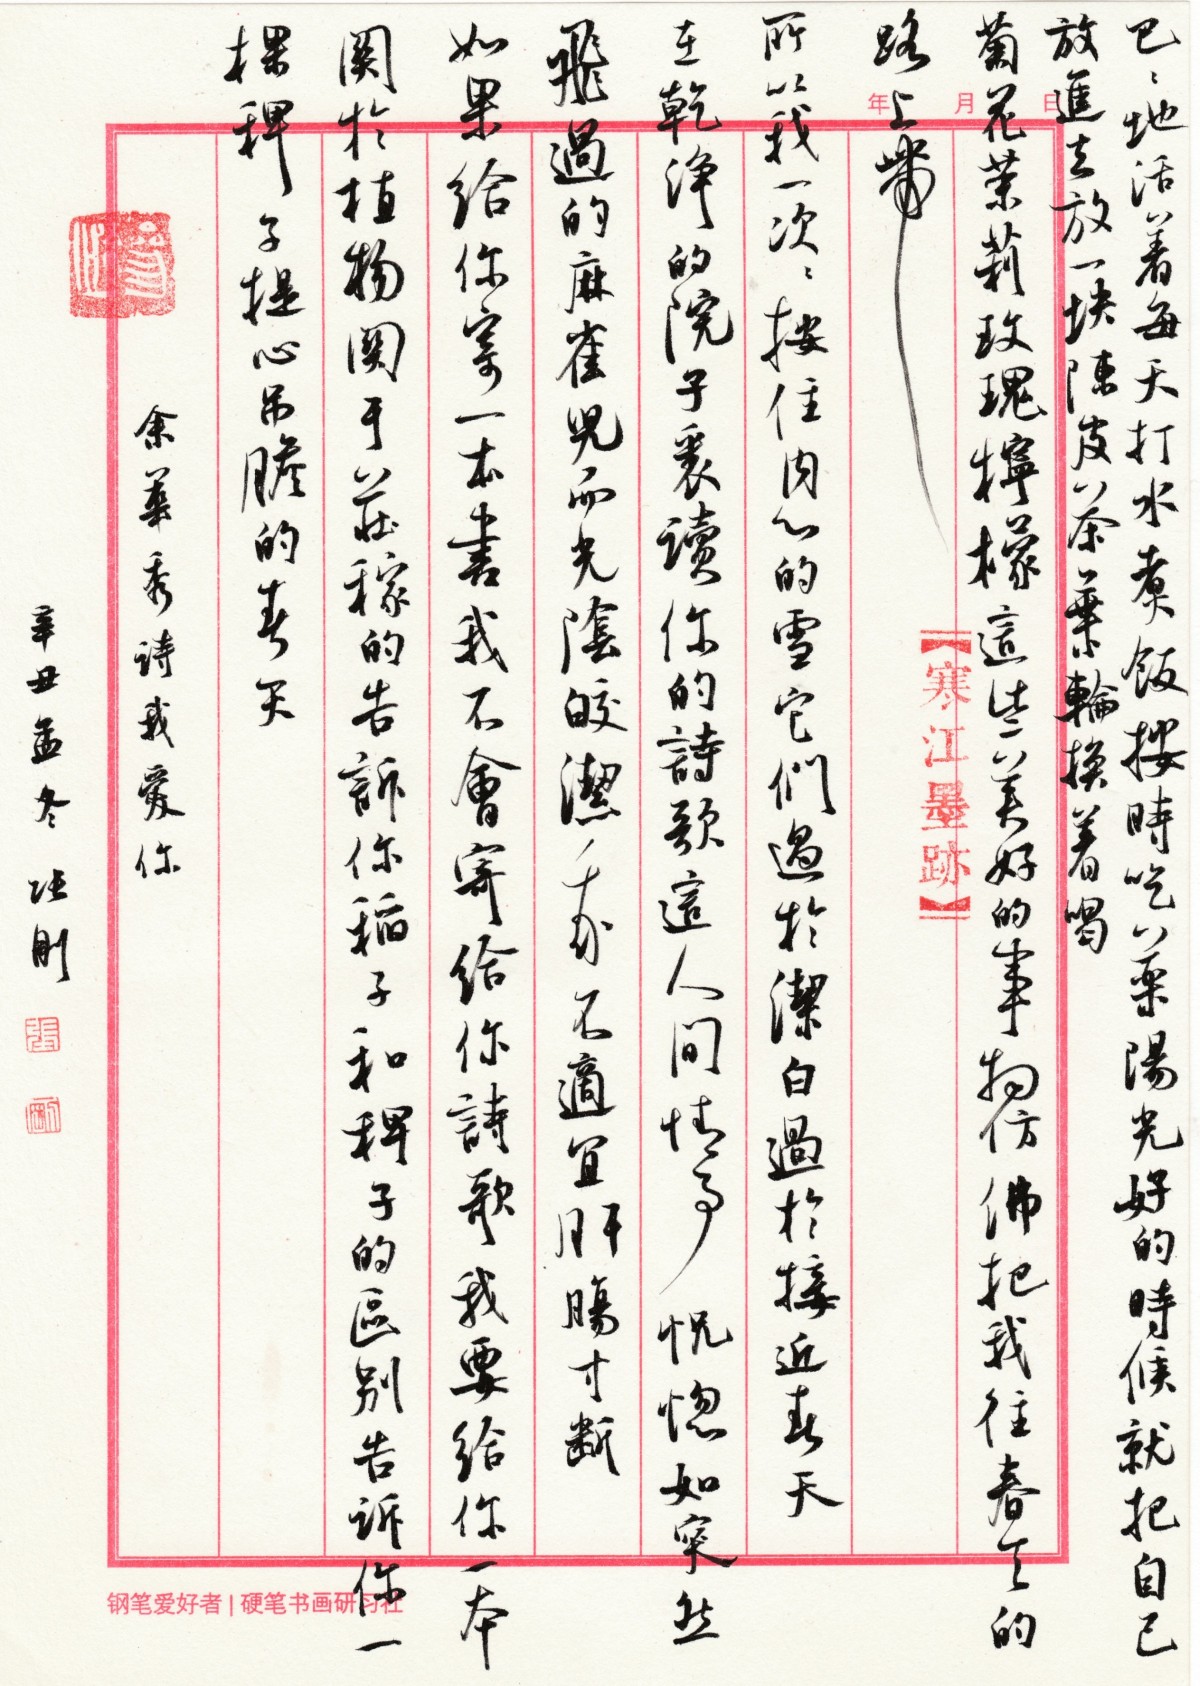 巴〻地活着每天打水煮飯按時吃藥陽光好的時候就把自己
放進去放一块陳皮茶葉輪换着喝
菊花茉莉玫瑰檸檬這些美好的事物仿佛把我往春天的
路上带
所以我一次〻按住内心的雪它們過於潔白過於接近春天
在乾淨的院子裏讀你的詩歌這人间情事恍惚如突然
飛過的麻雀兒而光陰皎潔我不適宜肝腸寸斷
如果給你寄一本書我不會寄給你詩歌我要給你一本
関於植物関于莊稼的告訴你稻子和稗子的區别告訴你一
棵稗子提心吊膽的春天
余華秀詩我愛你
辛丑孟冬 张刚
張
剛
年 月 日
【寒江墨跡】
钢笔爱好者 | 硬笔书画研习社